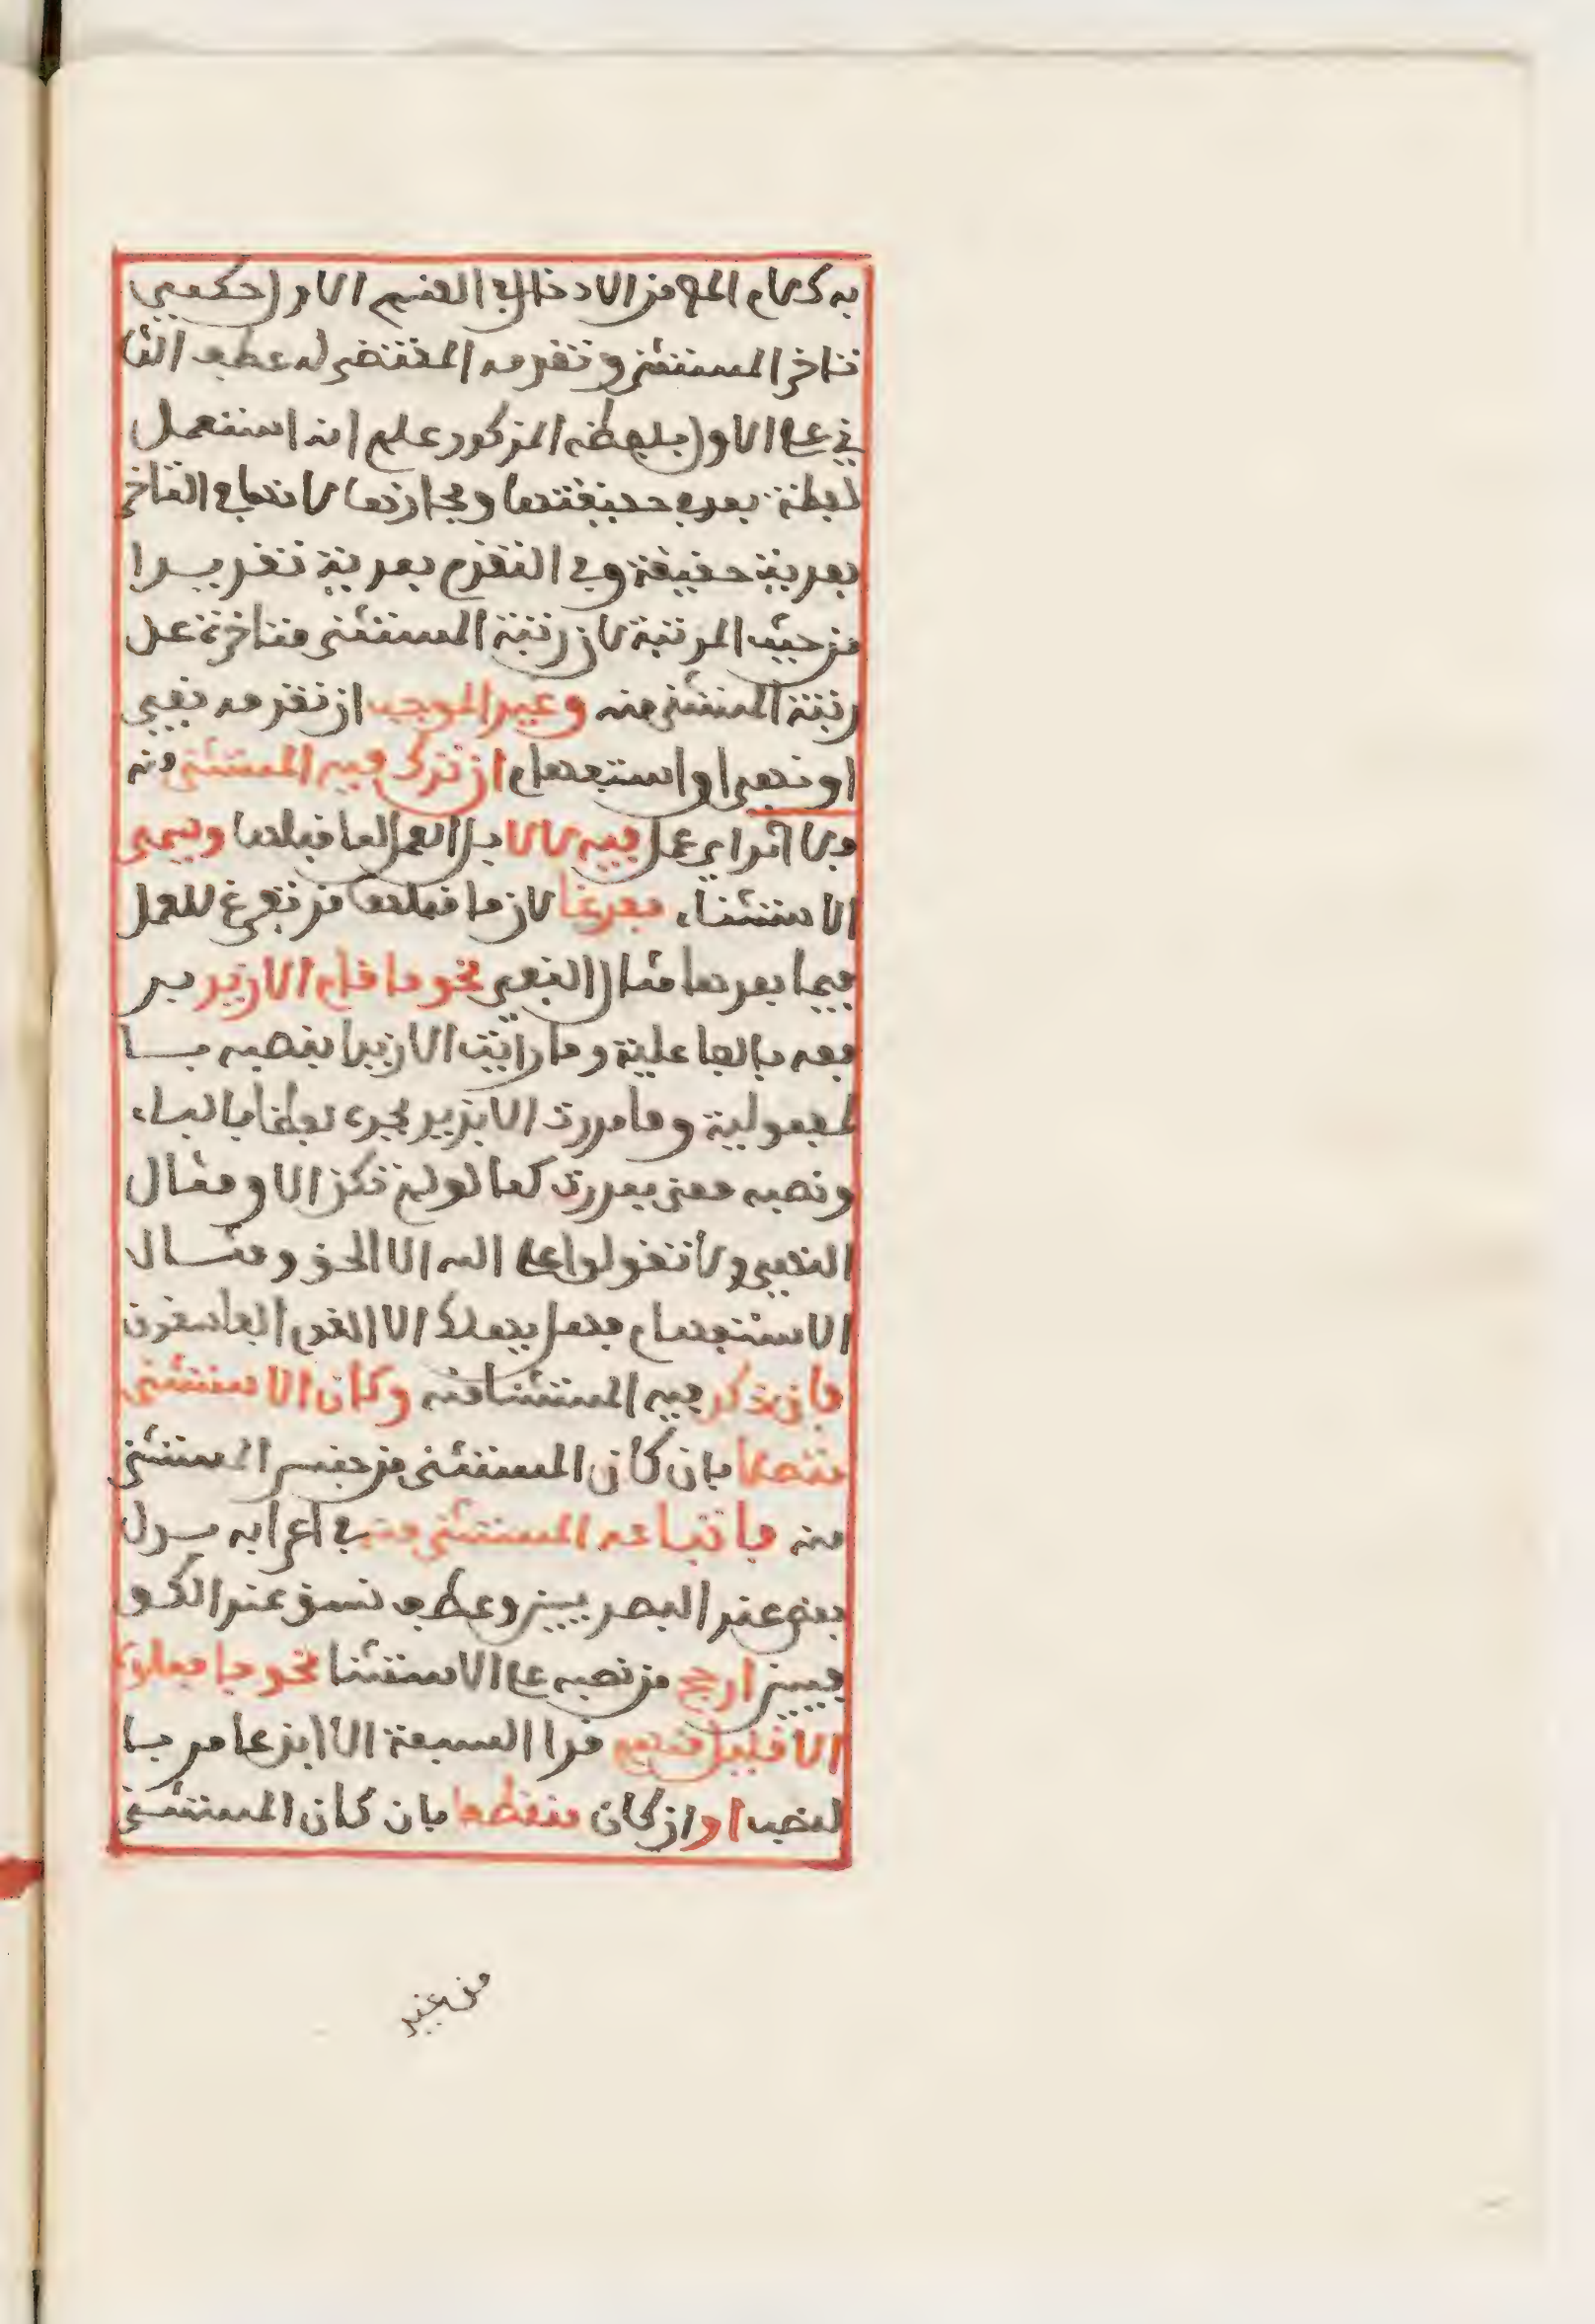 به كلام المص من الادخال في القسم الاول حكمي
تاخر المستثنى وتقدمه المقتضى له عطف الثا
ني على الاول بلفظه المذكور علم انه استعمل
لفظة بعد في حقيقتها ومجازها لانها في التاخر
بعدية حقيقة وفي التقدم بعدية تقديرا
من حيث المرتبة لان رتبة المستثنى متاخرة عل
رتبة المستثنى منه وغير الموجب ان تقدمه نفي
او نهي او استفهام ان ترك فيه المستثنى منه
فلا اثر اي عمل فيه لالا بل العمل لما قبلها ويسمى
الاستثناء مفرغا لان ما قبلها من تفرغ للعمل
فيما بعدها مثال النفي نحو ما قام الا زيد بر
فعه بالفاعلية وما رايت الا زيدا بنصبه با
لمفعولية وما مررت الا بزيد بجره لفظا بالباء
ونصبه معنى بمررت كما لو لم تكن الا ومثال
النهي ولا تقولوا على الله الا الحق ومثال
الاستفهام فهل يهلك الا القوم الفاسقون
فان يذكر فيه المستثنا منه وكان الاستثنى
متصلا بان كان المستثنى من جنس المستثنى
منه فاتباعه المستثنى منه في اعرابه بدل
بعض عند البصريين وعطف نسق عند الكو
فيين ارجح من نصبه على الاستثنا نحو ما فعلوه
الا قليل منهم قرا السبعة الا ابن عامر با
لنصب او ان كان منقطعا بان كان المستثنى
من غير